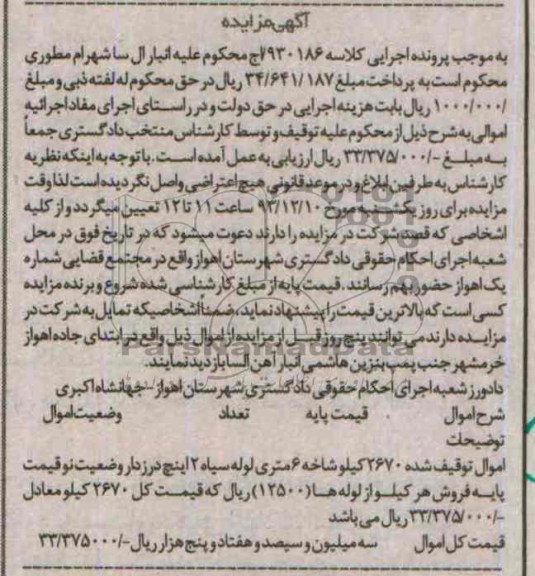 آگهی مزایده
به موجب پرونده اجرایی کلاسه ۹۳۰۱۸۶/اج محکوم علیه انبار ال سا شهرام مطوری
محکوم است به پرداخت مبلغ ۳۴/۶۴۱/۱۸۷ ریال در حق محکوم له لفته ذبی و مبلغ
۱۰۰۰/۰۰۰/ ریال بابت هزینه اجرایی در حق دولت و در راستای اجرای مفاد اجرائیه
اموالی به شرح ذیل از محکوم علیه توقیف و توسط کارشناس منتخب دادگستری جمعاً
به مبلغ -/۳۳/۳۷۵/۰۰۰ ریال ارزیابی به عمل آمده است. با توجه به اینکه نظریه
کارشناس به طرفین ابلاغ و در موعد قانونی هیچ اعتراضی واصل نگردیده است لذا وقت
مزایده برای روز یکشنبه مورخ ۹۳/۱۲/۱۰ ساعت ۱۱ تا ۱۲ تعیین میگردد و از کلیه
اشخاصی که قصد شرکت در مزایده را دارند دعوت میشود که در تاریخ فوق در محل
شعبه اجرای احکام حقوقی دادگستری شهرستان اهواز واقع در مجتمع قضایی شماره
یک اهواز حضور بهم رسانند. قیمت پایه از مبلغ کارشناسی شده شروع و برنده مزایده
کسی است که بالاترین قیمت را پیشنهاد نماید، ضمناً اشخاصیکه تمایل به شرکت در
مزایده دارند می توانند پنج روز قبل از مزایده از اموال ذیل واقع در ابتدای جاده اهواز
خرمشهر جنب پمپ بنزین هاشمی انبار آهن السا بازدید نمایند.
دادورز شعبه اجرای احکام حقوقی دادگستری شهرستان اهواز - جهانشاه اکبری
شرح اموال قیمت پایه تعداد وضعیت اموال
توضیحات
اموال توقیف شده ۲۶۷۰ کیلو شاخه ۶ متری لوله سیاه ۲ اینچ درزدار وضعیت نو قیمت
پایه فروش هر کیلو از لوله ها (۱۲۵۰۰) ریال که قیمت کل ۲۶۷۰ کیلو معادل
-/۳۳/۳۷۵/۰۰۰ ریال می باشد
قیمت کل اموال سه میلیون و سیصد و هفتاد و پنج هزار ریال -/۳۳/۳۷۵۰۰۰
ParsNamadData